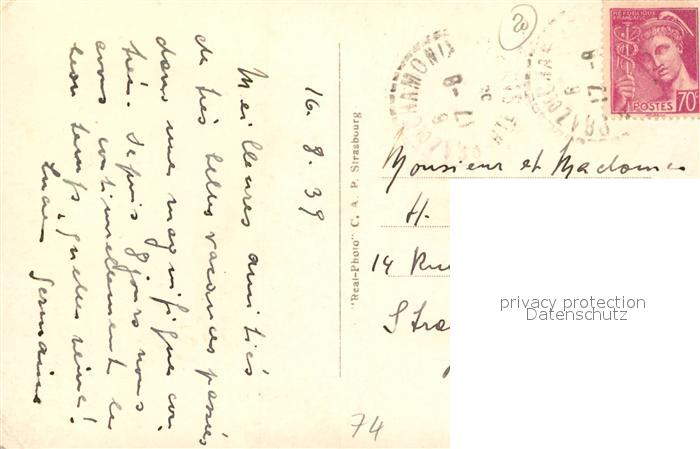 16.8.39
Meilleures amitiés
de très belles vacances passées
dans une magnifique con
trée. Depuis 8 jours nous
avons continuellement le
beau temps, quelle veine!
Germaine
"Real-Photo" C. A. P. Strasbourg
CHAMONIX
17 -8
REPUBLIQUE
FRANÇAISE
POSTES 70c
Monsieur et Madame
H.
14 Rue
Stra
privacy protection
Datenschutz
74